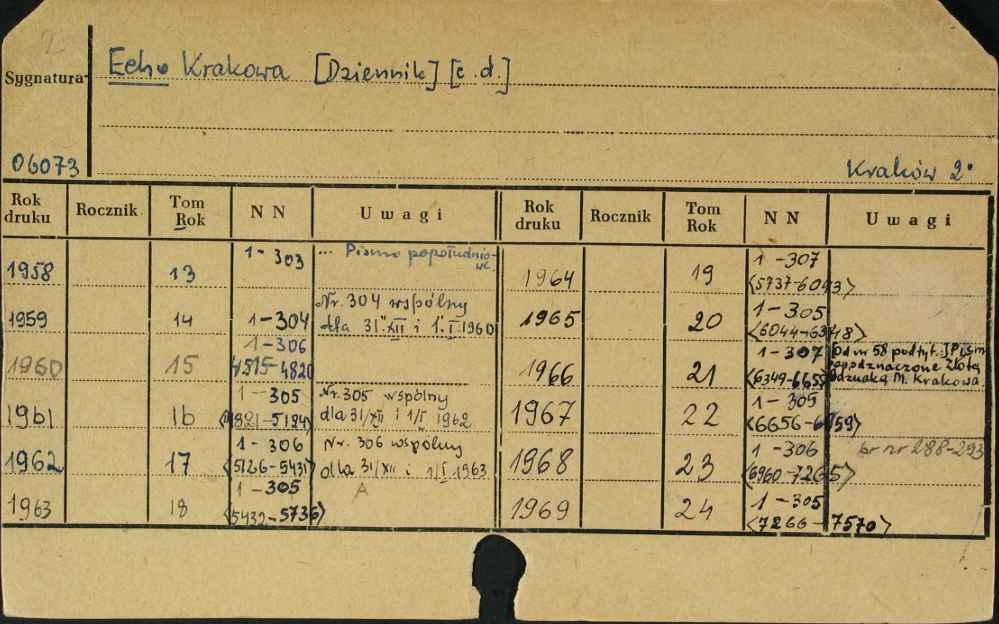 2
Echo Krakowa [Dziennik] [c.d.]
Sygnatura
06073
Kraków 2°
Rok druku Rocznik Tom Rok NN Uwagi Rok druku Rocznik Tom Rok NN Uwagi
1958 13 1-303 ... Pismo popołudniowe.
1959 14 1-304 Nr. 304 wspólny dla 31.XII i 1.I.1960
1960 15 1-306 4515-4820
1961 16 1-305 <4821-5124> Nr. 305 wspólny dla 31/XII i 1/I 1962
1962 17 1-306 <5126-5431> Nr. 306 wspólny dla 31/XII i 1/I.1963
1963 18 1-305 <5432-5736> A
1964 19 1-307 <5737-6043>
1965 20 1-305 <6044-6348>
1966 21 1-307 <6349-6655> [Od nr 58 podtyt.:] Pismo odznaczone Złotą Odznaką M. Krakowa.
1967 22 1-305 <6656-6959>
1968 23 1-306 <6960-7265> br nr 288-293
1969 24 1-305 <7266-7570>